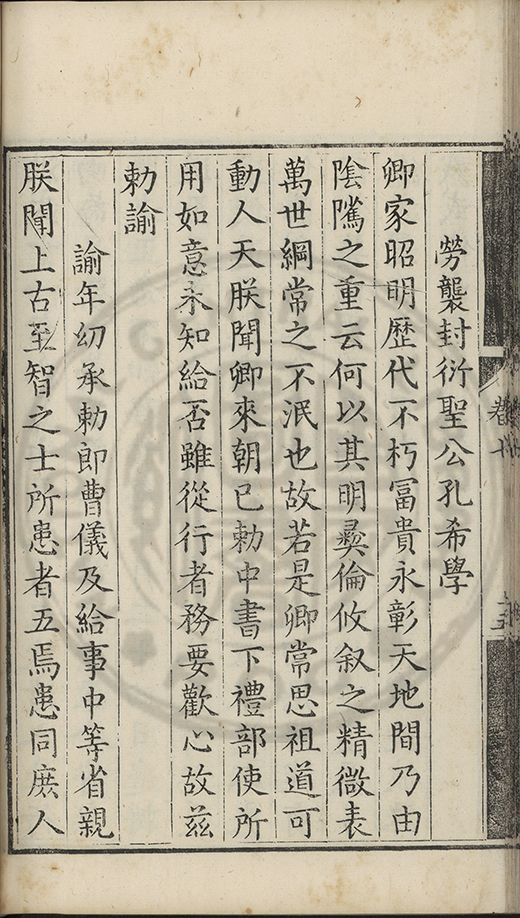 勞襲封衍聖公孔希學
卿家昭明歷代不朽冨貴永彰天地間乃由
陰隲之重云何以其明彝倫攸叙之精微表
萬世綱常之不泯也故若是卿常思祖道可
動人天朕聞卿來朝已勅中書下禮部使所
用如意未知給否雖從行者務要歡心故茲
勅諭
諭年幼承勅郎曹儀及給事中等省親
朕聞上古至智之士所患者五焉患同庶人